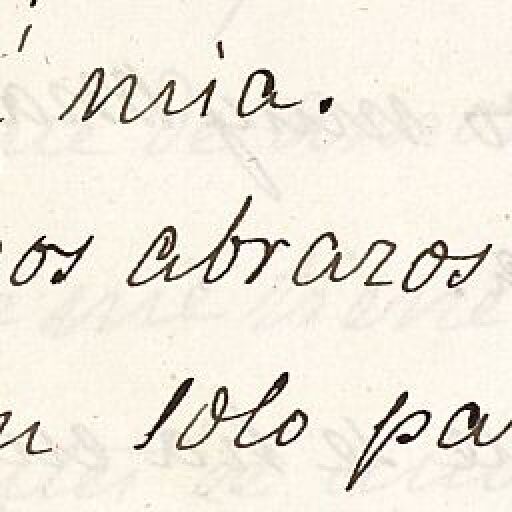 mia.
os abrazos
solo pa